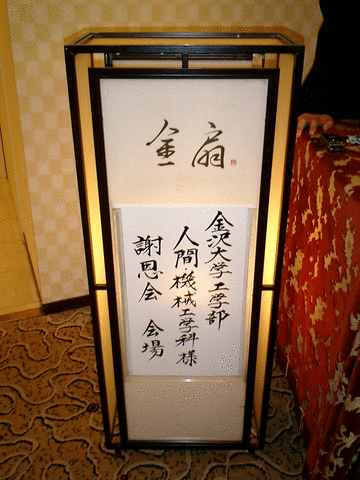 金扇
金沢大学工学部
人間・機械工学科様
謝恩会 会場